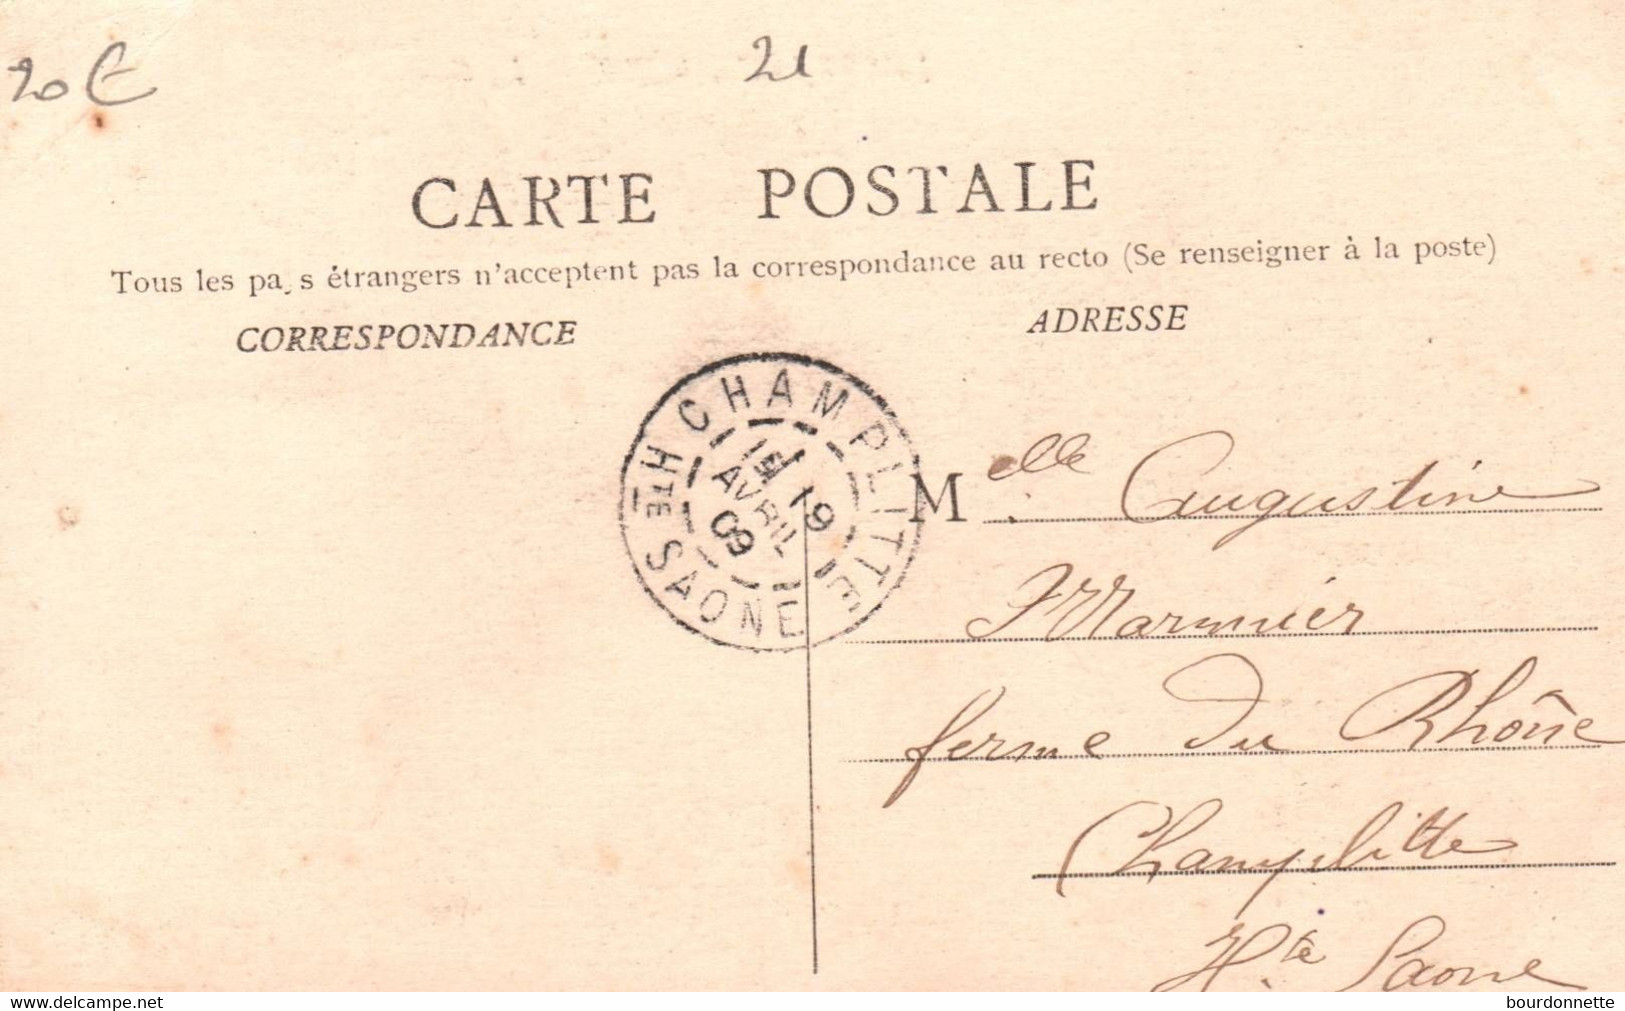 20 €
21
CARTE POSTALE
Tous les pays étrangers n'acceptent pas la correspondance au recto (Se renseigner à la poste)
CORRESPONDANCE
ADRESSE
CHAMPLITTE
Hte SAONE
19
AVRIL
09
Melle Augustine
Marmier
ferme du Rhône
Champlitte
Hte Saone
www.delcampe.net
bourdonnette